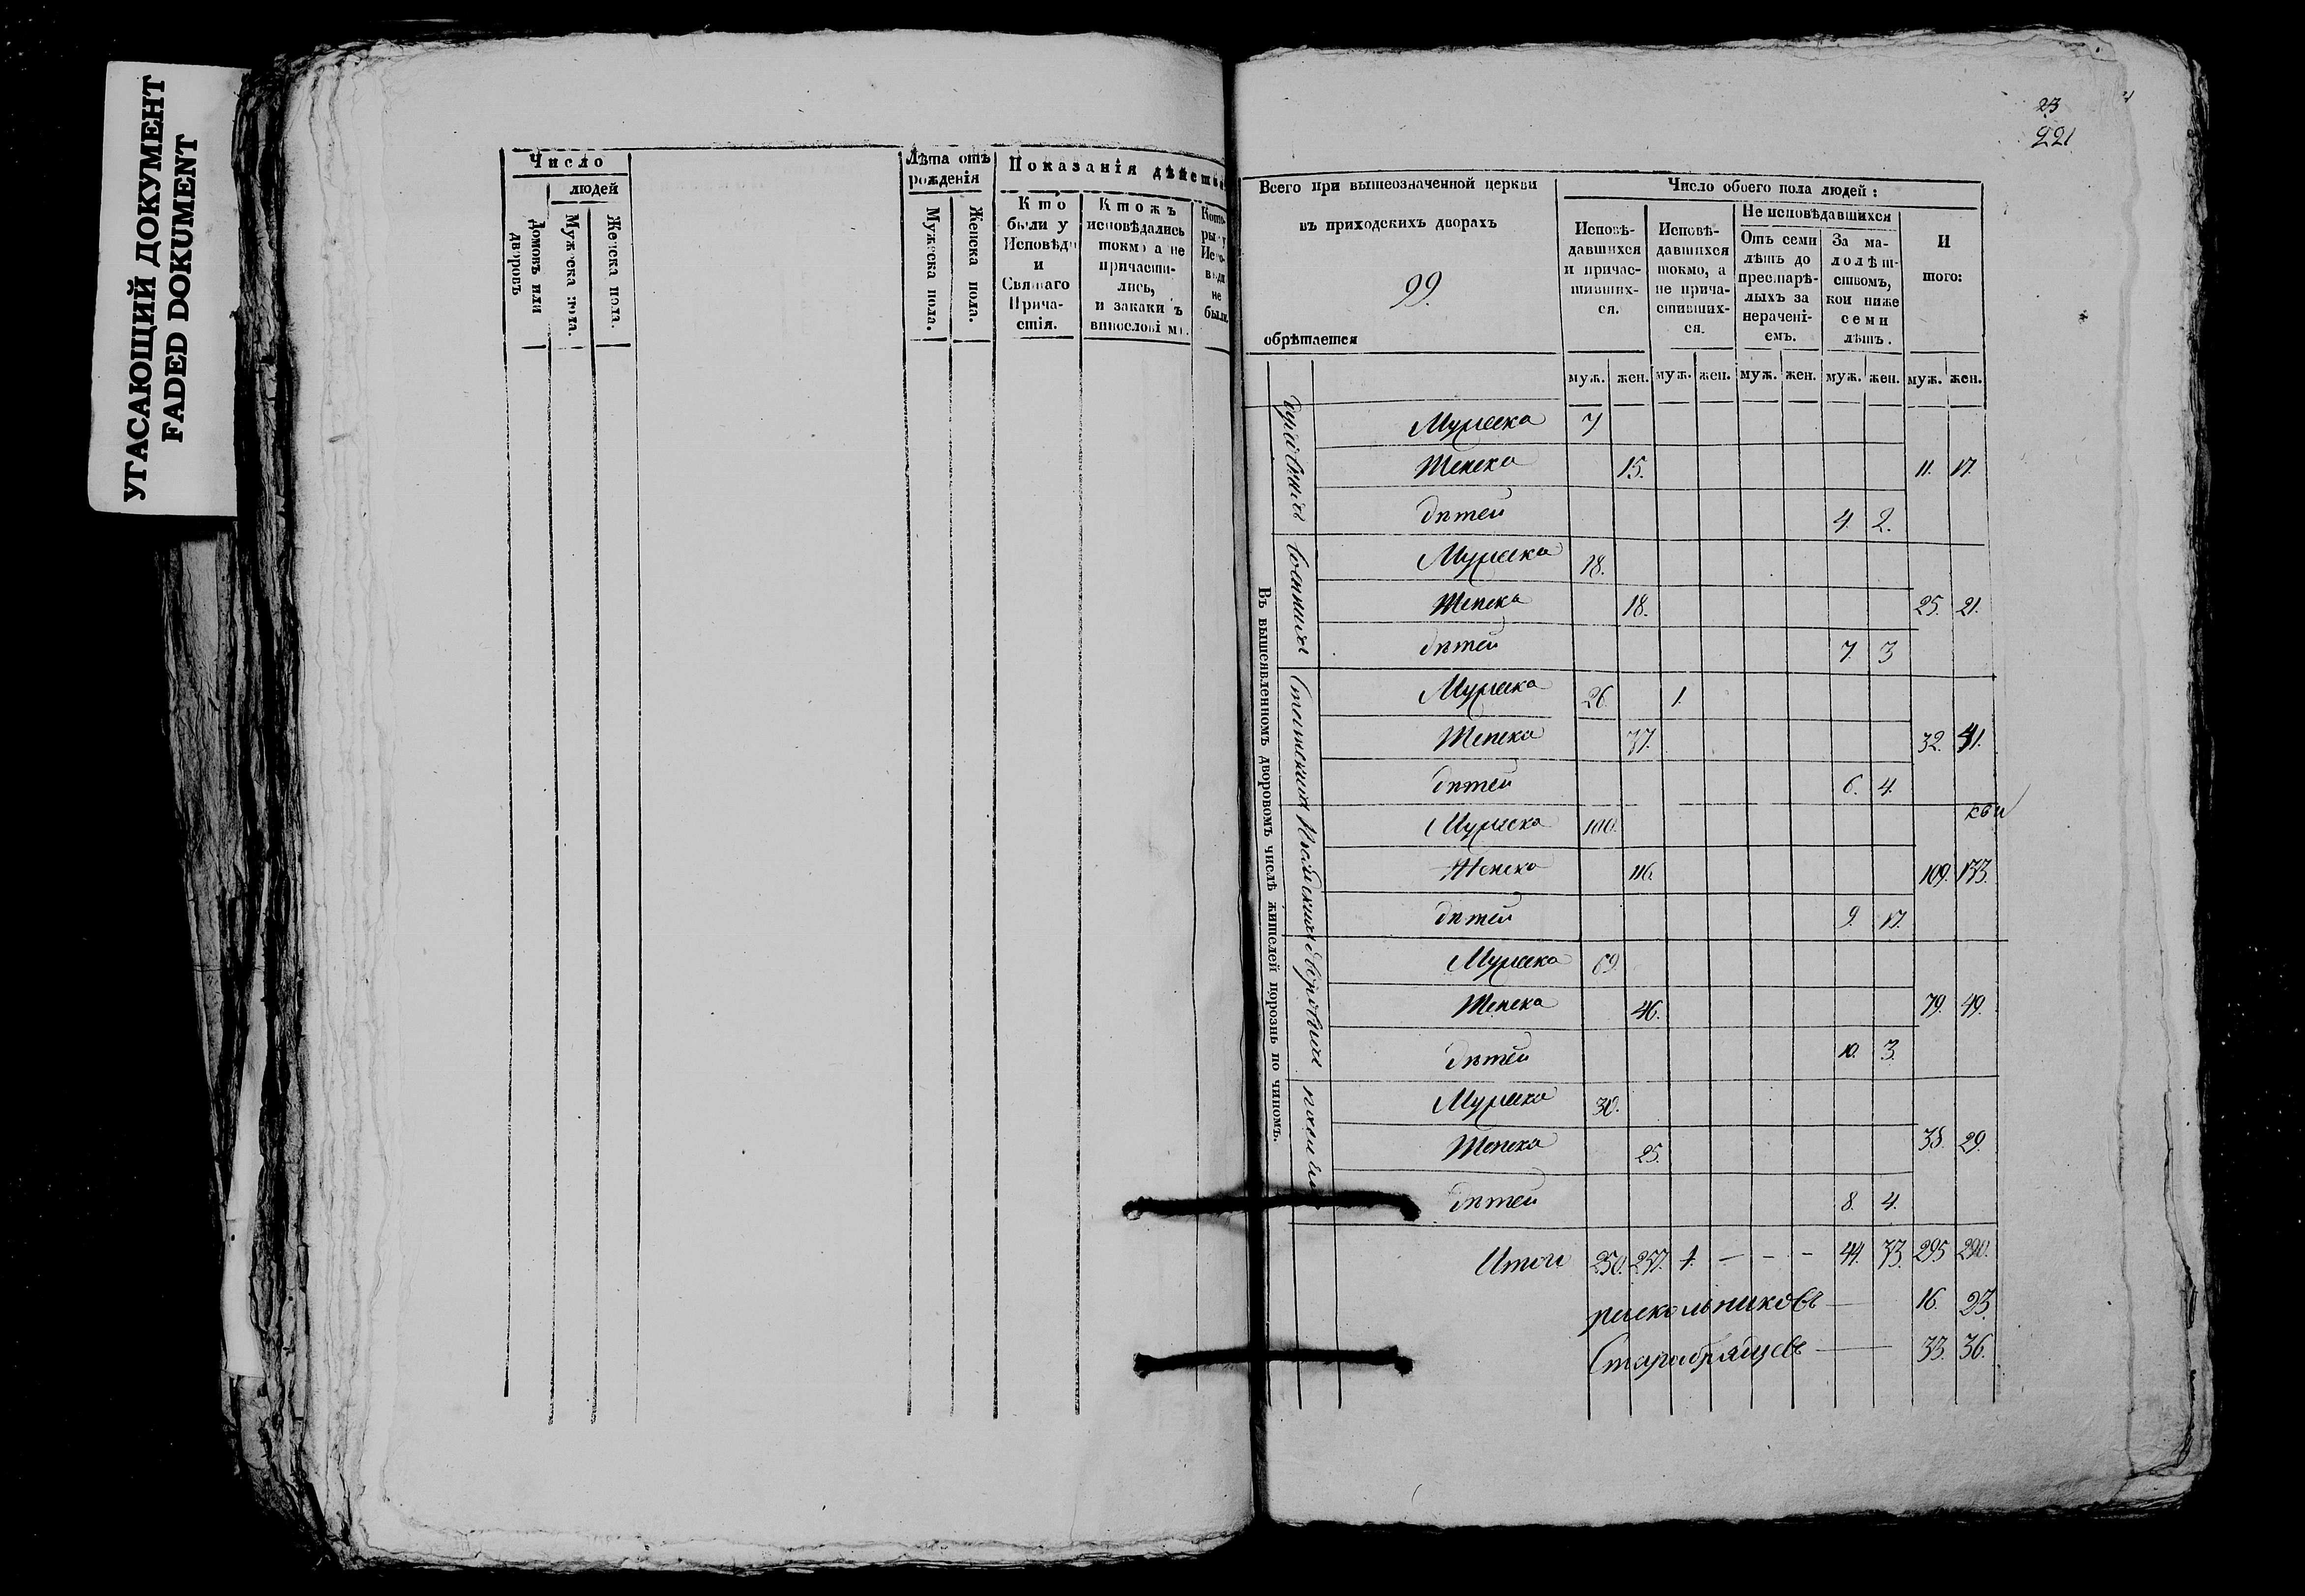 УГАСАЮЩИЙ ДОКУМЕНТ
FADED DOKUMENT
Число
людей
Домовъ или дворовъ
Мужеска пола.
Женска пола.
Лѣта отъ рожденія
Мужеска пола.
Женска пола.
Показанія дѣйств
Кто были у Исповѣди и Святаго Прича- стія.
Ктожъ исповѣдались токмо а не причасти- лись, и закакимъ винословіемъ.
Кото- рыя у Испо- вѣди не были.
23
221
Всего при вышеозначенной церкви
въ приходскихъ дворахъ
99.
обрѣтается
Число обоего пола людей:
Исповѣ- давшихся и причас- тивших- ся.
Исповѣ- давшихся токмо, а не прича- стивших- ся.
Не исповѣдавшихся
Отъ семи лѣтъ до престарѣ- лыхъ за нерачені- емъ.
За ма- лолѣт- ствомъ, кои ниже семи лѣтъ.
И того:
муж. жен. муж. жен. муж. жен. муж. жен. муж. жен.
Въ вышеявленномъ дворовомъ числѣ жителей порознь по чиномъ.
духовныхъ
Мужеска 7
Женска 15. 11. 17.
дѣтей 4. 2.
военныхъ
Мужеска 18.
Женска 18. 25. 21.
дѣтей 7. 3
Статскихъ
Мужеска 26. 1.
Женска 37. 32. 41.
дѣтей 6. 4.
Мужеска 100.
Женска 116. 109. 133.
дѣтей 9. 17.
дворовыхъ
Мужеска 69.
Женска 46. 79. 49.
дѣтей 10. 3.
Мужеска 30.
Женска 25. 38. 29.
дѣтей 8. 4.
Итого 250. 257. 1. — - - 44. 33. 295 290.
раскольниковъ — 16. 23.
Старобрядцевъ — 33. 36.